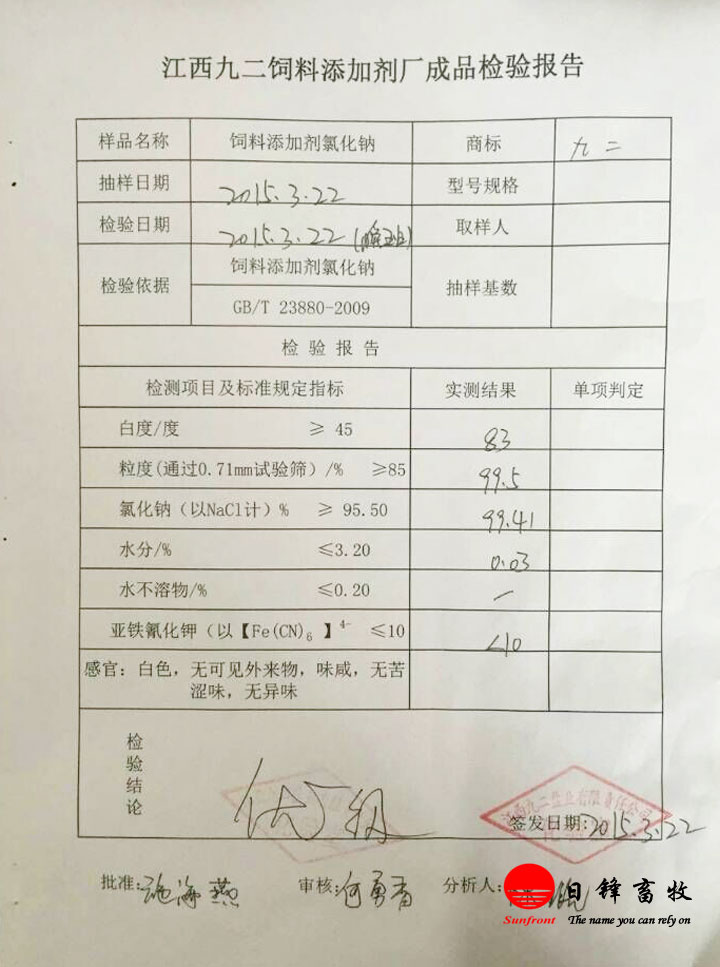 江西九二饲料添加剂厂成品检验报告
样品名称 饲料添加剂氯化钠 商标 九二
抽样日期 2015.3.22 型号规格
检验日期 2015.3.22 取样人
检验依据 饲料添加剂氯化钠 抽样基数
GB/T 23880-2009
检 验 报 告
检测项目及标准规定指标 实测结果 单项判定
白度/度 ≥ 45 83
粒度(通过0.71mm试验筛）/% ≥85 99.5
氯化钠（以NaCl计）% ≥ 95.50 99.41
水分/% ≤3.20 0.03
水不溶物/% ≤0.20 —
亚铁氰化钾（以【Fe(CN)₆ 】⁴⁻ ≤10 <10
感官：白色，无可见外来物，味咸，无苦
涩味，无异味
检验结论 优级
江西九二盐业有限责任公司
签发日期: 2015.3.22
批准: 施海燕 审核: 何勇香 分析人:
日锋畜牧
Sunfront The name you can rely on